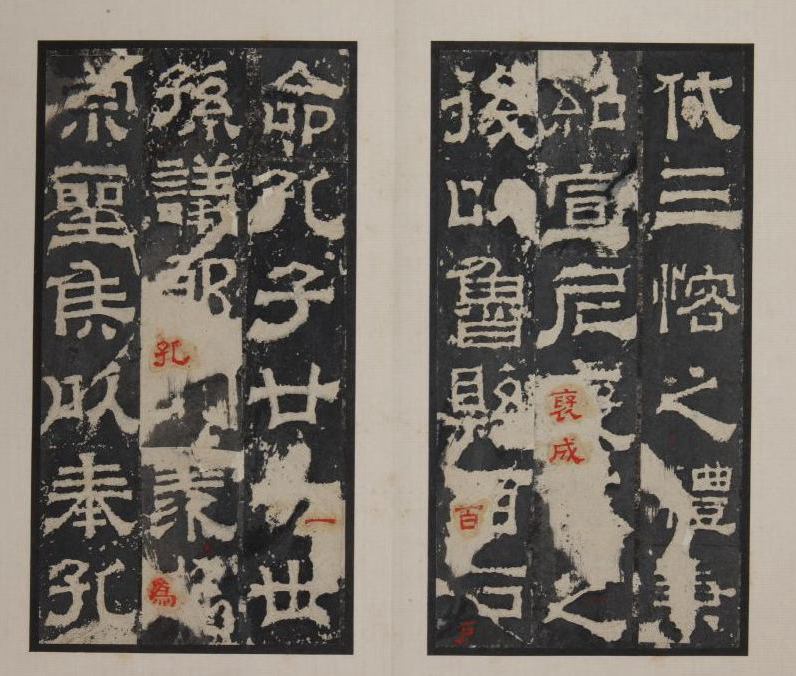 代三愘之禮兼
紹宣尼褒成之
後以魯縣百户
命孔子廿一世
孫議郎孔羡為
宗聖侯以奉孔